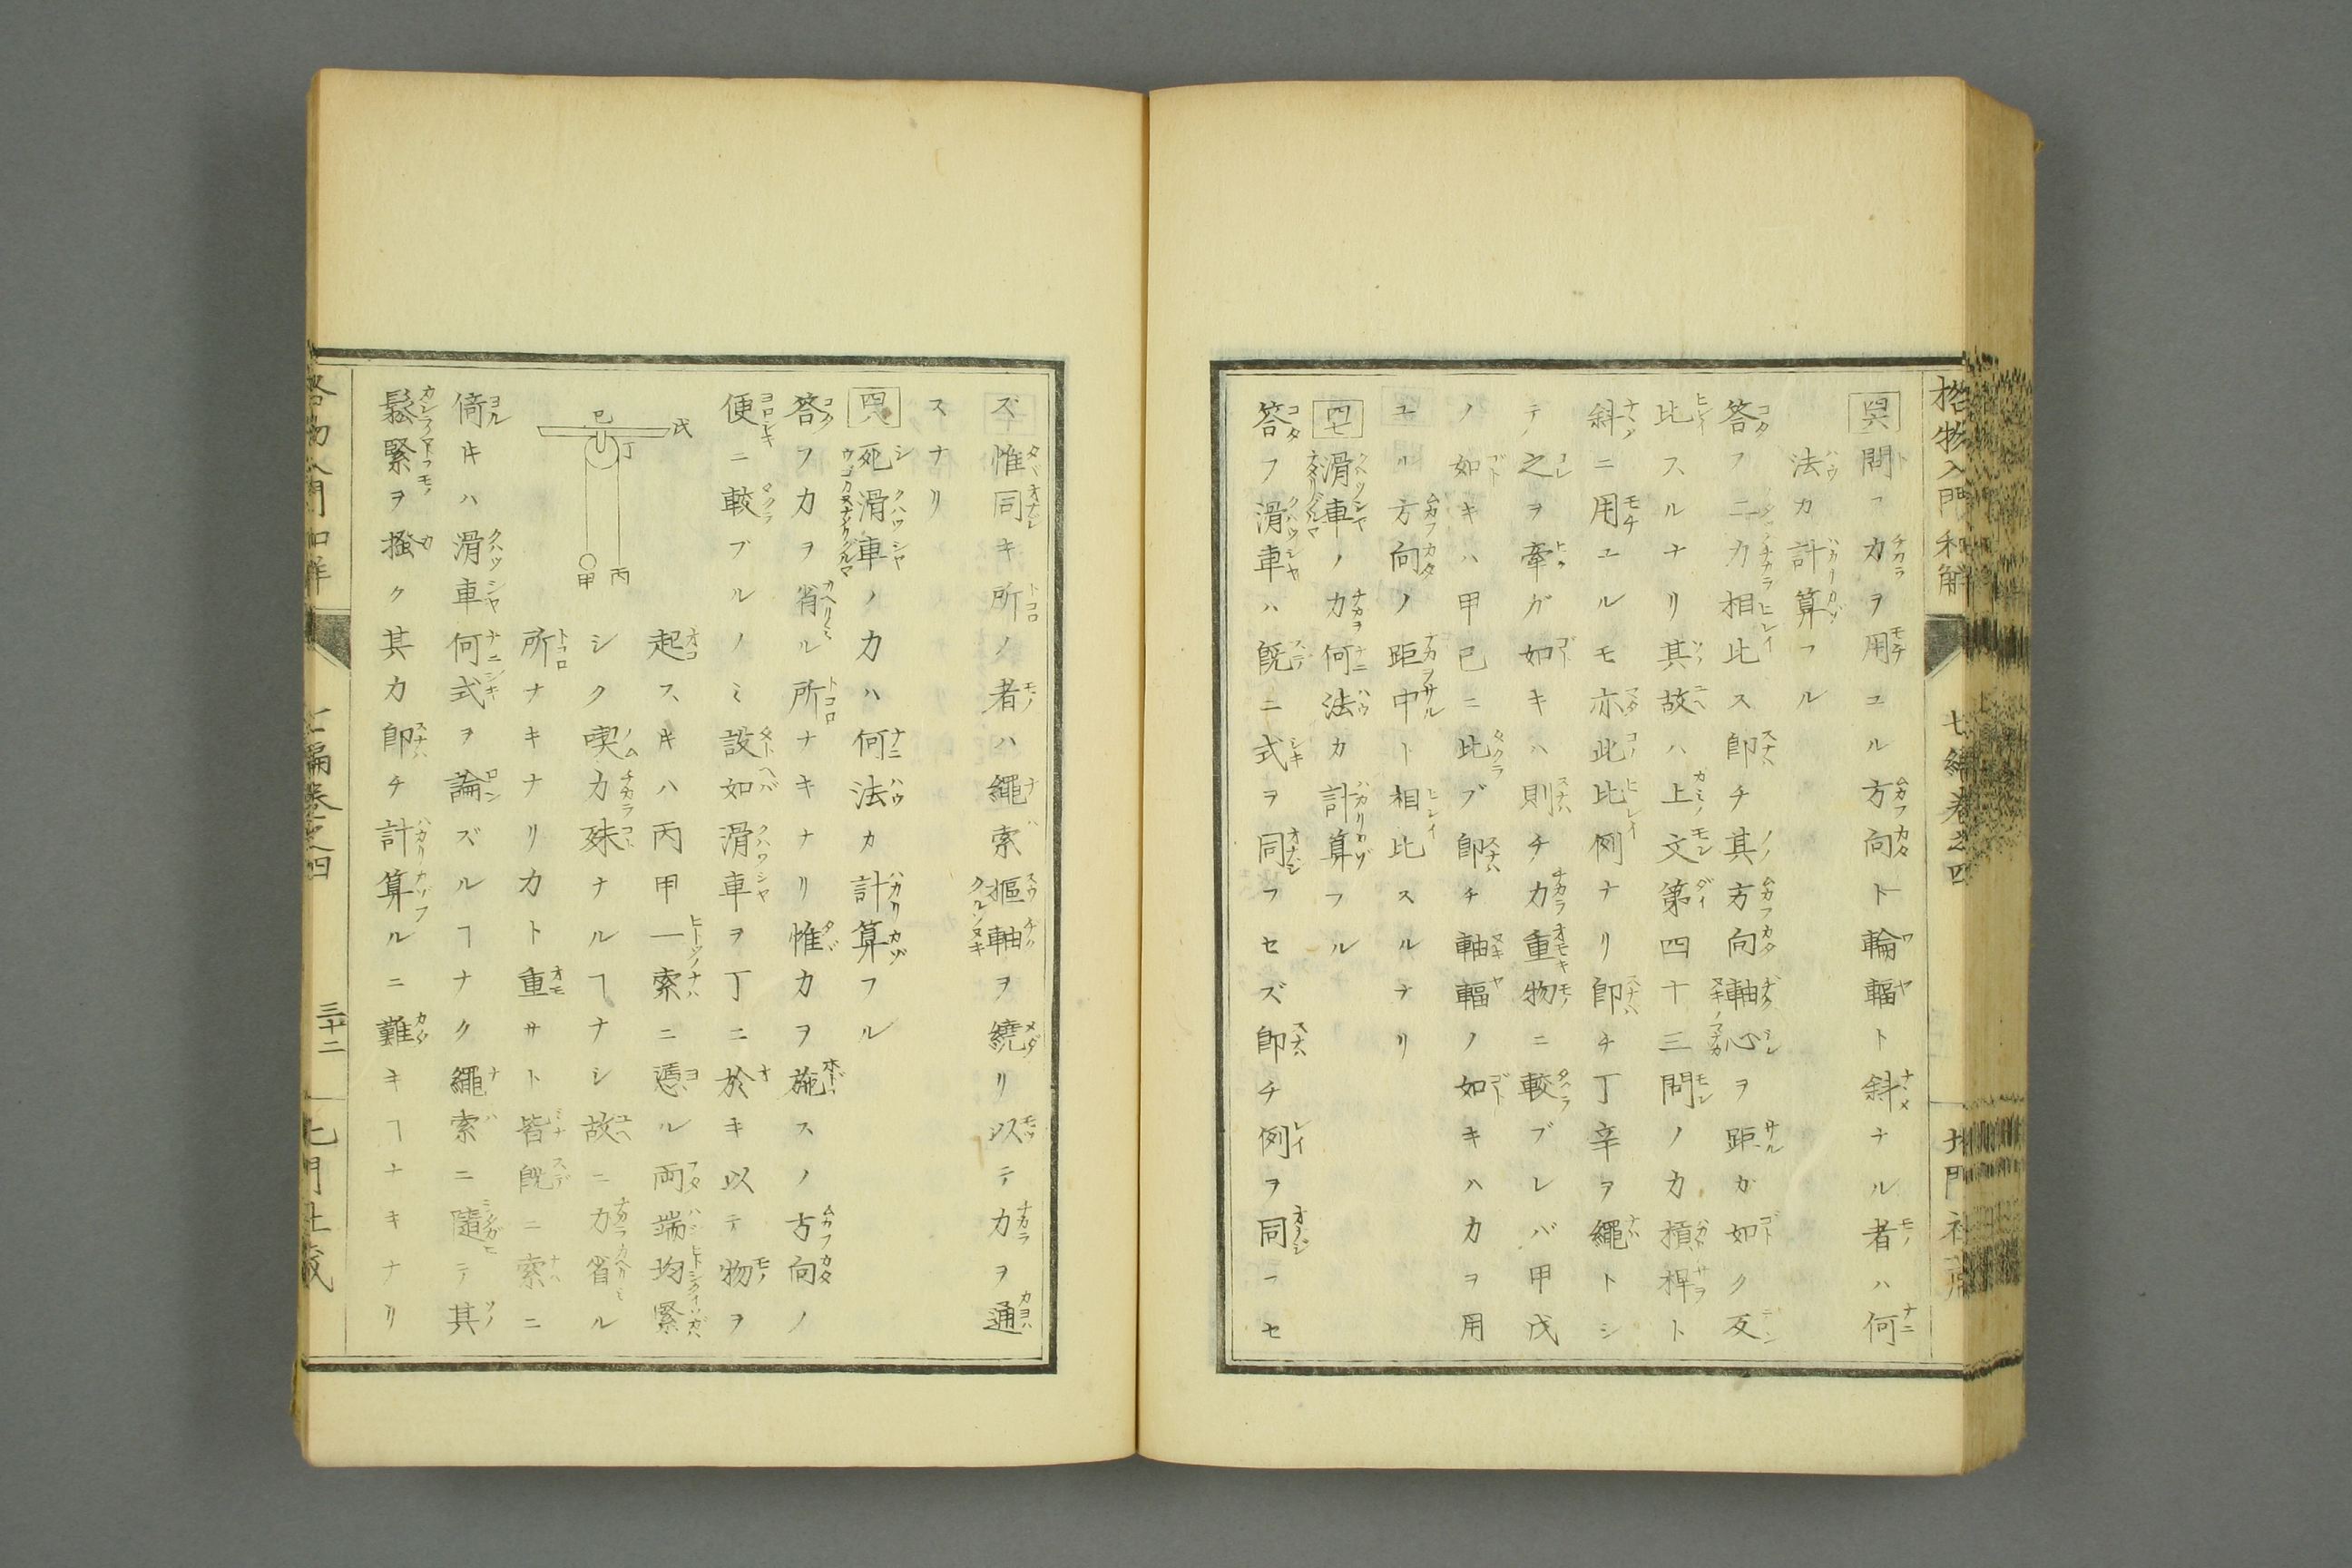 格物入門和解 七編卷之四
四六 問フ力ヲ用ユル方向ト輪輻ト斜ナル者ハ何
法カ計算フル
答フ二力相比ス即チ其方向軸心ヲ距カ如ク反
比スルナリ其故ハ上文第四十三問ノ力槓桿ト
斜ニ用ユルモ亦此比例ナリ即チ丁辛ヲ繩トシ
テ之ヲ牽ガ如キハ則チ力重物ニ較ブレバ甲戊
ノ如キハ甲己ニ比ブ即チ軸輻ノ如キハ力ヲ用
ユル方向ノ距中ト相比スルナリ
四七 滑車ノ力何法カ計算フル
答フ滑車ハ既ニ式ヲ同フセズ即チ例ヲ同フセ
ズ惟同キ所ノ者ハ繩索樞軸ヲ繞リ以テ力ヲ通
スナリ
四八 死滑車ノ力ハ何法カ計算フル
答フ力ヲ省ル所ナキナリ惟力ヲ施スノ方向ノ
便ニ較ブルノミ設如滑車ヲ丁ニ於キ以テ物ヲ
起スキハ丙甲一索ニ憑ル両端均緊
シク喫力殊ナルヿナシ故ニ力省ル
所ナキナリ力ト重サト皆既ニ索ニ
己 戊 丁 甲 丙
倚キハ滑車何式ヲ論ズルヿナク繩索ニ隨テ其
鬆緊ヲ搔ク其力即チ計算ルニ難キヿナキナリ
格物入門和解 七編卷之四 三十二 北門社藏